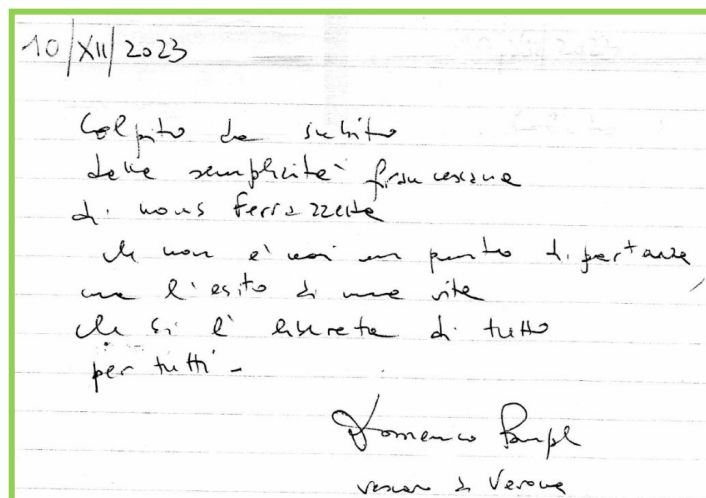 10/XII/2023
Colpito da subito
dalla semplicità francescana
di mons Ferrazzetta
che non è mai un punto di partenza
ma l'esito di una vita
che si è liberata di tutto
per tutti -
Domenico Pompili
vescovo di Verona